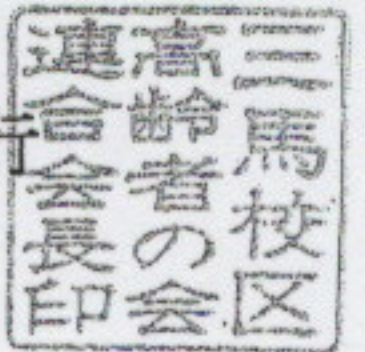 三馬校区
高齢者の会
連合会長印